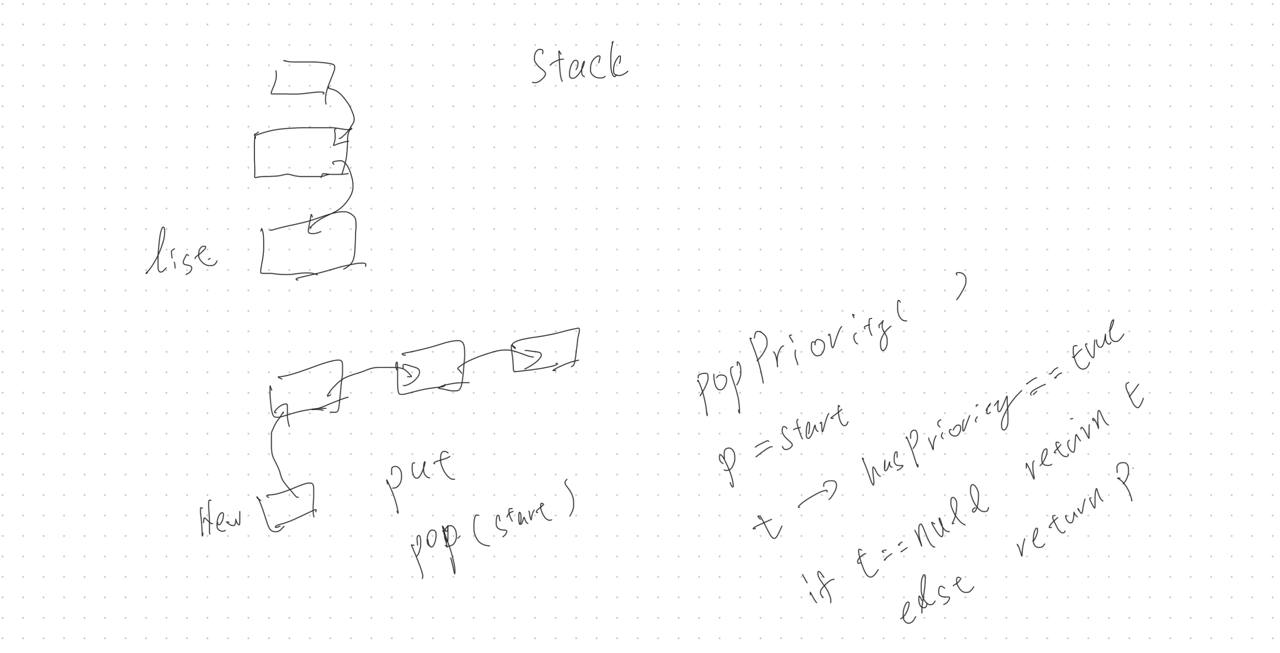 Stack
list
New
put
pop (start)
popPriority( )
p = start
t → hasPriority == true
if t == null return t
else return p